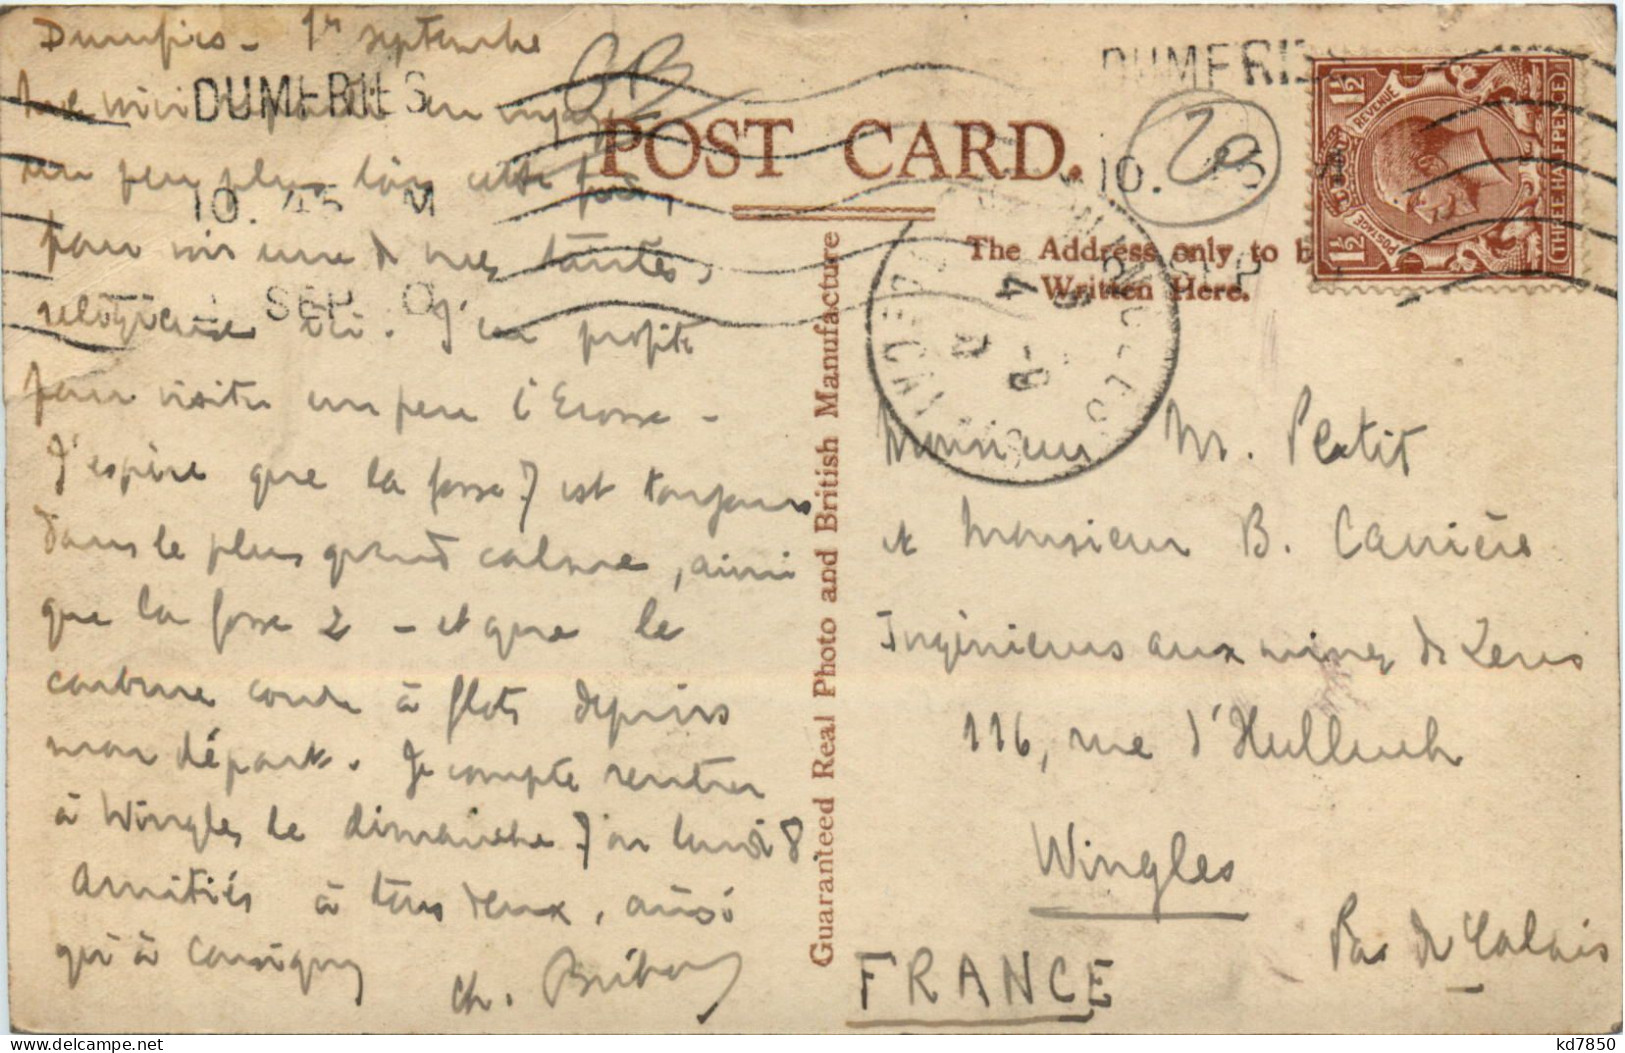 Dumfries - 1er septembre
DUMFRIES
Me voici parti en voyage
un peu plus loin cette fois,
10. 45 M
pour voir une de mes tantes,
religieuse ici. J'en profite
1 SEP
pour visiter un peu l'Ecosse -
J'espère que la fosse 7 est toujours
dans le plus grand calme, ainsi
que la fosse 2 - et que le
carbure coule à flots depuis
mon départ. Je compte rentrer
à Wingles le dimanche 7 ou lundi 8.
Amitiés à tous deux, ainsi
qu'à Consigny
Ch.
GB
POST CARD.
DUMFRIES
10. 45
20
SEP
The Address only to b
Written Here.
REVENUE
POSTAGE
1½
1½
THREE HALFPENCE
Guaranteed Real Photo and British Manufacture
Monsieur M. Petit
et Monsieur B. Carrière
Ingénieurs aux mines de Lens
116, rue d'Hulluch
Wingles
Pas de Calais
FRANCE
kd7850